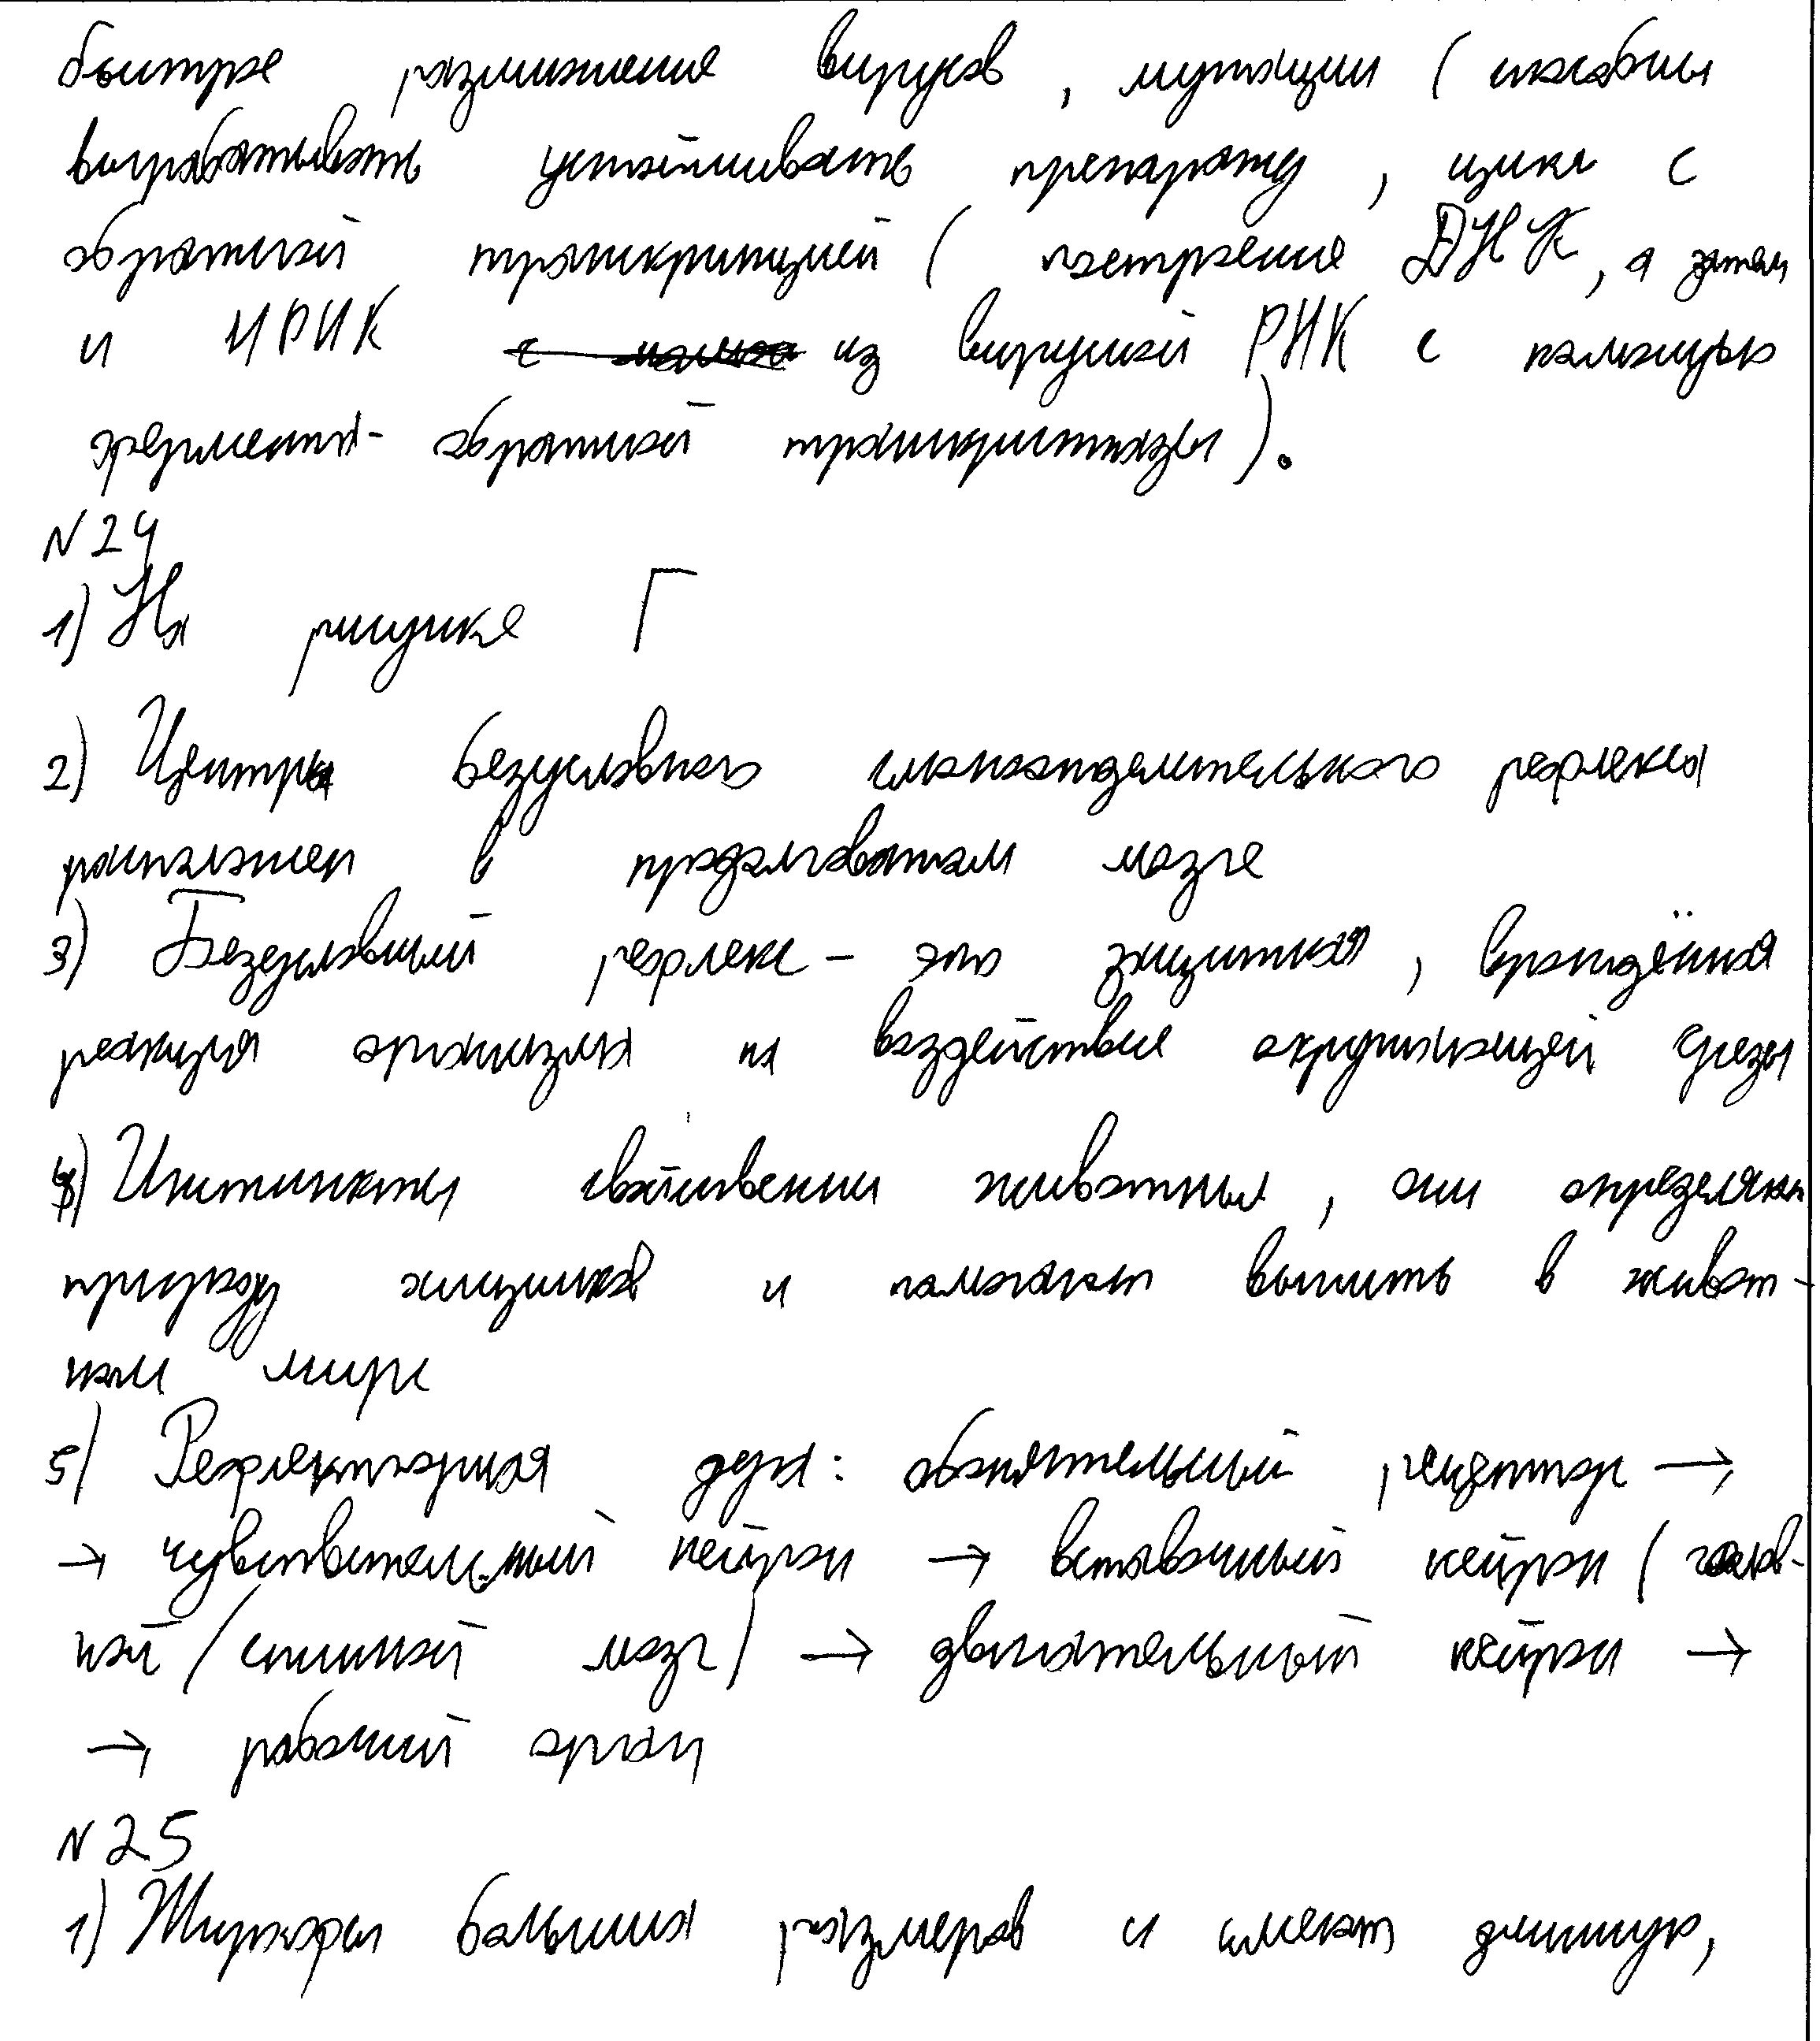 быстрое размножение вирусов, мутации (способны
вырабатывать устойчивость препарату, цикл с
обратной транскрипцией (построение ДНК, а затем
и иРНК из вирусной РНК с помощью
фермента- обратной транскриптазы).
N24
1) На рисунке Г
2) Центр безусловного слюноотделительного рефлекса
расположен в продолговатом мозге
3) Безусловный рефлекс - это защитная, врождённая
реакция организма на воздействие окружающей среды
4) Инстинкты свойственны животным, они определяют
природу хищников и помогают выжить в живот-
ном мире
5) Рефлекторная дуга: обонятельный рецептор →
→ чувствительный нейрон → вставочный нейрон (голов-
ной/спинной мозг) → двигательный нейрон →
→ рабочий орган
N25
1) Жирафы больших размеров и имеют длинную,